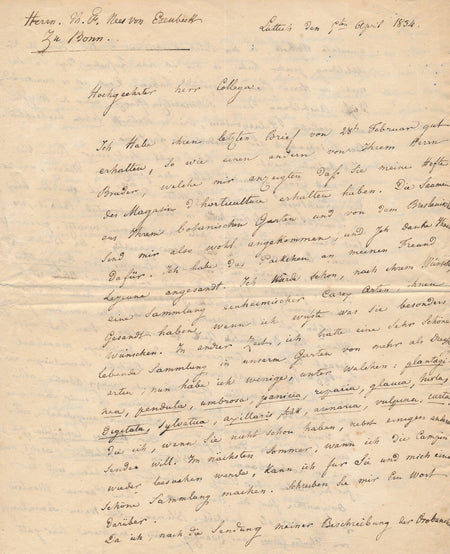 Herrn. Th. Fr. Nees von Esenbeck
Zu Bonn.
Lüttich den 9ten April 1834.
Hochgeehrter Herr Collega.
Ich Habe ihren letzten Brief von 28ten Februar gut
erhalten, so wie einen andern von Ihrem Herrn
Bruder, welche mir anzeigten Daß Sie meine Hefte
des Magasin d'horticulture erhalten haben. Die Saamen
aus Ihrem botanischen Garten und von dem Breslauer
Sind mir also wohl angekommen, und Ich danke Ihnen
Dafür. Ich habe das Päckchen an meinen Freund
Lejeune gesandt. Ich Würde schon, nach ihrem Wunsch
eine Sammlung einheimischer Carex Arten, ihnen
Gesandt haben, wenn ich wüßte was Sie besonders
Wünschen. In andrer Zeit, ich hatte eine Sehr Schöne
lebende Sammlung in unserm Garten von mehr als
arten, nun habe ich wenige, unter welchen: plantagi-
nea, pendula, umbrosa, panicea, riparia, glauca, hirta,
Digitata, Sylvatica, axillaris, arenaria, vulpina, curta
Die ich, wenn Sie nicht schon haben, nebst einigen andern
Senden will. Im nächsten Sommer, wann ich die Campine
wieder besuchen werde, kann ich für Sie und mich eine
Schöne Sammlung machen. Schreiben Sie mir Ein Wort
Darüber.
Da ich, nach die Sendung meiner Beschreibung der Orobanche